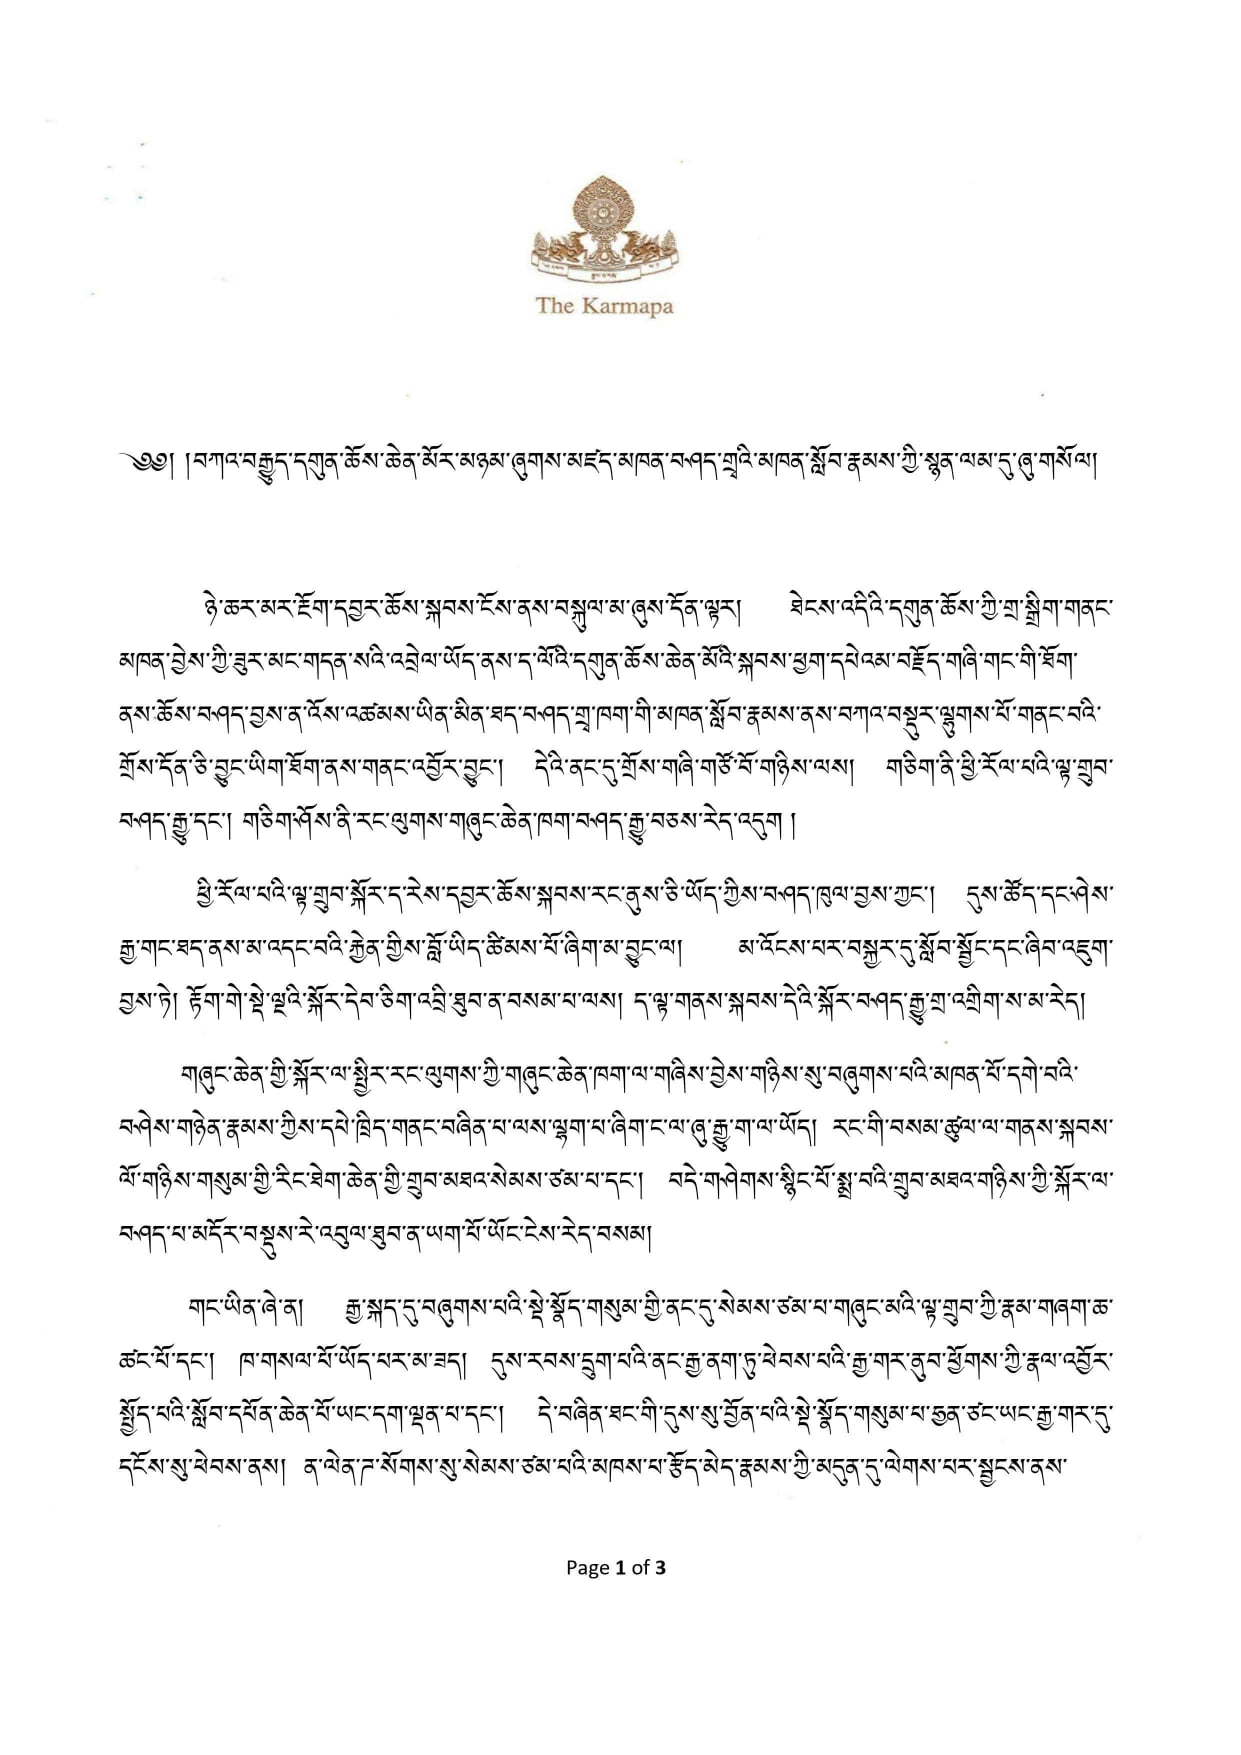 The Karmapa
༄༅། །བཀའ་བརྒྱུད་དགུན་ཆོས་ཆེན་མོར་མཉམ་ཞུགས་མཛད་མཁན་བཤད་གྲྭའི་མཁན་སློབ་རྣམས་ཀྱི་སྙན་ལམ་དུ་ཞུ་གསོལ།
ཉེ་ཆར་མར་ངོག་དབྱར་ཆོས་སྐབས་ངོས་ནས་བསྐུལ་མ་ཞུས་དོན་ལྟར། ཐེངས་འདིའི་དགུན་ཆོས་ཀྱི་གྲ་སྒྲིག་གནང་
མཁན་བྱེས་ཀྱི་ཟུར་མང་གདན་སའི་འབྲེལ་ཡོད་ནས་ད་ལོའི་དགུན་ཆོས་ཆེན་མོའི་སྐབས་ཕྱག་དཔེའམ་བརྗོད་གཞི་གང་གི་ཐོག་
ནས་ཆོས་བཤད་བྱས་ན་འོས་འཚམས་ཡིན་མིན་ཐད་བཤད་གྲྭ་ཁག་གི་མཁན་སློབ་རྣམས་ནས་བཀའ་བསྡུར་ལྷུགས་པོ་གནང་བའི་
གྲོས་དོན་ཅི་བྱུང་ཡིག་ཐོག་ནས་གནང་འབྱོར་བྱུང་། དེའི་ནང་དུ་གྲོས་གཞི་གཙོ་བོ་གཉིས་ལས། གཅིག་ནི་ཕྱི་རོལ་པའི་ལྟ་གྲུབ་
བཤད་རྒྱུ་དང་། གཅིག་ཤོས་ནི་རང་ལུགས་གཞུང་ཆེན་ཁག་བཤད་རྒྱུ་བཅས་རེད་འདུག །
ཕྱི་རོལ་པའི་ལྟ་གྲུབ་སྐོར་ད་རེས་དབྱར་ཆོས་སྐབས་རང་ནུས་ཅི་ཡོད་ཀྱིས་བཤད་ཁུལ་བྱས་ཀྱང་། དུས་ཚོད་དང་ཤེས་
རྒྱ་གང་ཐད་ནས་མ་འདང་བའི་རྐྱེན་གྱིས་བློ་ཡིད་ཚིམས་པོ་ཞིག་མ་བྱུང་ལ། མ་འོངས་པར་བསྐྱར་དུ་སློབ་སྦྱོང་དང་ཞིབ་འཇུག་
བྱས་ཏེ། རྟོག་གེ་སྡེ་ལྔའི་སྐོར་དེབ་ཅིག་འབྲི་ཐུབ་ན་བསམ་པ་ལས། ད་ལྟ་གནས་སྐབས་དེའི་སྐོར་བཤད་རྒྱུ་གྲ་འགྲིག་ས་མ་རེད།
གཞུང་ཆེན་གྱི་སྐོར་ལ་སྤྱིར་རང་ལུགས་ཀྱི་གཞུང་ཆེན་ཁག་ལ་གཞིས་བྱེས་གཉིས་སུ་བཞུགས་པའི་མཁན་པོ་དགེ་བའི་
བཤེས་གཉེན་རྣམས་ཀྱིས་དཔེ་ཁྲིད་གནང་བཞིན་པ་ལས་ལྷག་པ་ཞིག་ང་ལ་ཞུ་རྒྱུ་ག་ལ་ཡོད། རང་གི་བསམ་ཚུལ་ལ་གནས་སྐབས་
ལོ་གཉིས་གསུམ་གྱི་རིང་ཐེག་ཆེན་གྱི་གྲུབ་མཐའ་སེམས་ཙམ་པ་དང་། བདེ་གཤེགས་སྙིང་པོ་སྨྲ་བའི་གྲུབ་མཐའ་གཉིས་ཀྱི་སྐོར་ལ་
བཤད་པ་མདོར་བསྡུས་རེ་འབུལ་ཐུབ་ན་ཡག་པོ་ཡོང་ངེས་རེད་བསམ།
གང་ཡིན་ཞེ་ན། རྒྱ་སྐད་དུ་བཞུགས་པའི་སྡེ་སྣོད་གསུམ་གྱི་ནང་དུ་སེམས་ཙམ་པ་གཞུང་མའི་ལྟ་གྲུབ་ཀྱི་རྣམ་གཞག་ཆ་
ཚང་པོ་དང་། ཁ་གསལ་པོ་ཡོད་པར་མ་ཟད། དུས་རབས་དྲུག་པའི་ནང་རྒྱ་ནག་ཏུ་ཕེབས་པའི་རྒྱ་གར་ནུབ་ཕྱོགས་ཀྱི་རྣལ་འབྱོར་
སྤྱོད་པའི་སློབ་དཔོན་ཆེན་པོ་ཡང་དག་ལྡན་པ་དང་། དེ་བཞིན་ཐང་གི་དུས་སུ་བྱོན་པའི་སྡེ་སྣོད་གསུམ་པ་ཧྱན་ཙང་ཡང་རྒྱ་གར་དུ་
དངོས་སུ་ཕེབས་ནས། ན་ལེན་ཌ་སོགས་སུ་སེམས་ཙམ་པའི་མཁས་པ་རྩོད་མེད་རྣམས་ཀྱི་མདུན་དུ་ལེགས་པར་སྦྱངས་ནས་
Page 1 of 3